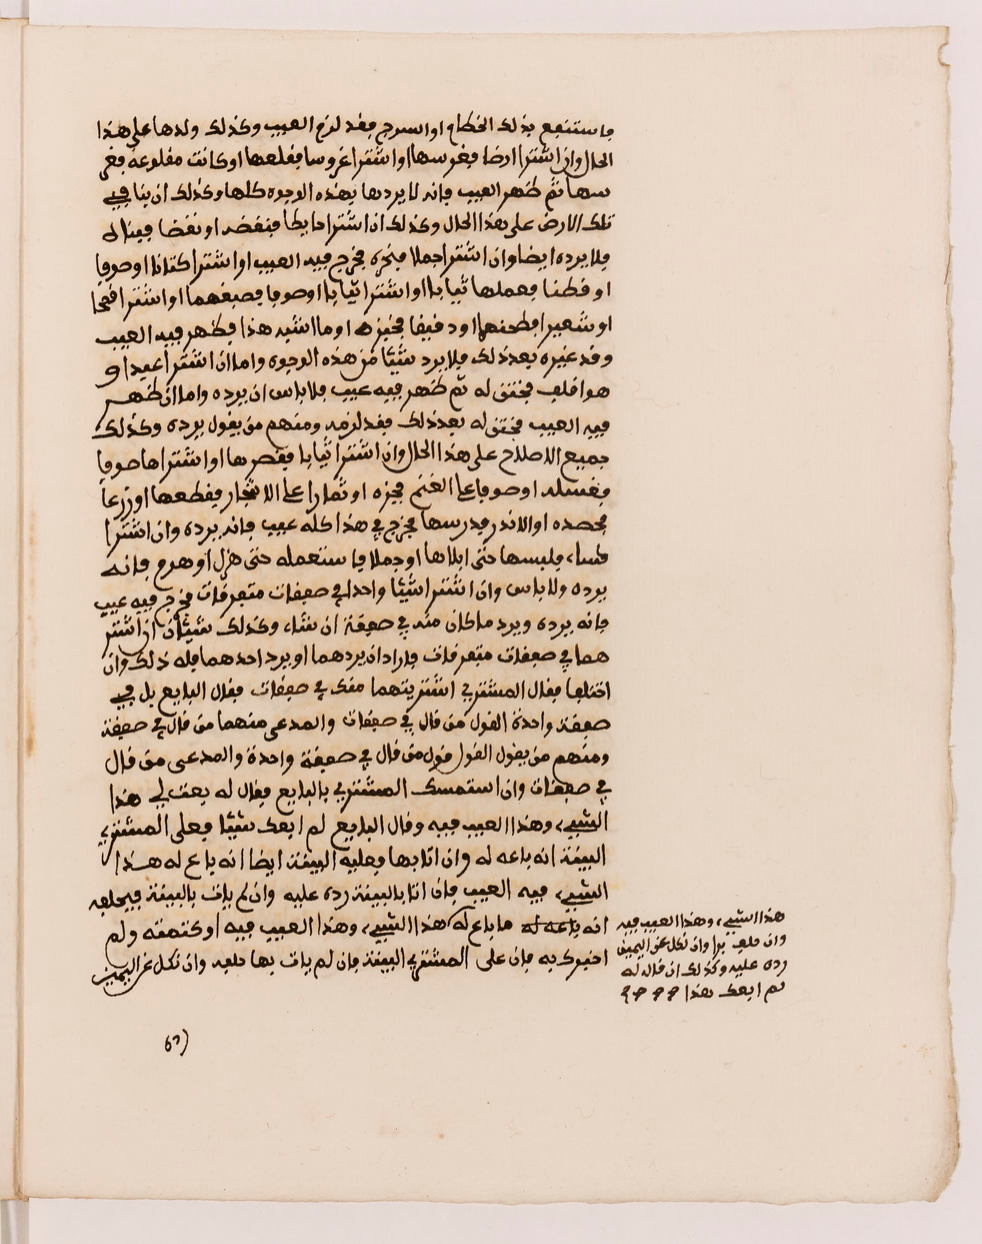 فاستنفع بذلك الخطام او السرج فقد لزم العيب وكذلك ولدها على هذا
الحال وان اشترا ارضا فغرسها او اشترا غروسا فقلعها او كانت مقلوعة فغر
سها ثم ظهر العيب فانه لا يردها بهذه الوجوه كلها وكذلك ان بنا في
تلك الارض على هذا الحال وكذلك ان اشترا حايطا فنقضه او نقضا فبنا له
فلا يرده ايضا وان اشترا جملا فنحره فخرج فيه العيب او اشترا كتانا او صوفا
او قطنا فعملها ثيابا او اشترا ثيابا او صوفا فصبغهما او اشترا قمحا
او شعيرا فطحنهما او دقيقا فخبزه او ما اشبه هذا فظهر فيه العيب
وقد غيره بعد ذلك فلا يرد شيئا من هذه الوجوه واما ان اشترا عبدا و
هو اقلف فختن له ثم ظهر فيه عيب فلا باس ان يرده واما ان ظهر
فيه العيب فختن له بعد ذلك فقد لزمه ومنهم من يقول يرده وكذلك
جميع الاصلاح على هذا الحال وان اشترا ثيابا فقصرها او اشتراها صوفا
فغسله او صوفا على الغنم فجزه او ثمارا على الاشجار فقطعها او زرعا
فحصده او الاندر فدرسها فخرج في هذا كله عيب فانه يرده وان اشترا
كساء فلبسها حتى ابلاها او جملا فاستعمله حتى هزل او هرم فانه
يرده ولا باس وان اشترا شيئا واحدا في صفقات متفرقات فخرج فيه عيب
فانه يرده ويرد ما كان منه في صفقة ان شاء وكذلك شيئان ان اشتر
هما في صفقات متفرقات فاراد ان يردهما او يرد احدهما فله ذلك وان
اختلفا فقال المشتري اشتريتهما منك في صفقات فقال البايع بل في
صفقة واحدة القول من قال في صفقات والمدعى منهما من قال في صفقة
ومنهم من يقول القول قول من قال في صفقة واحدة والمدعى من قال
في صفقات وان استمسك المشتري بالبايع فقال له بعت لي هذا
الشيء وهذا العيب فيه وقال البايع لم ابعك شيئا فعلى المشتري
البينة انه باعه له وان اتا بها فعليه البينة ايضا انه باع له هذا
الشيء فيه العيب فان اتا بالبينة رده عليه وان لم يات بالبينة فيحلفه
انه باعه له ما باع له هذا الشيء وهذا العيب فيه او كتمته ولم
اخبرك به فان على المشتري البينة فان لم يات بها حلفه وان نكل عن اليمين
هذا الشيء وهذا العيب فيه
وان حلف برا وان نكل عن اليمين
رده عليه وكذلك ان قال له
لم ابعك هذا